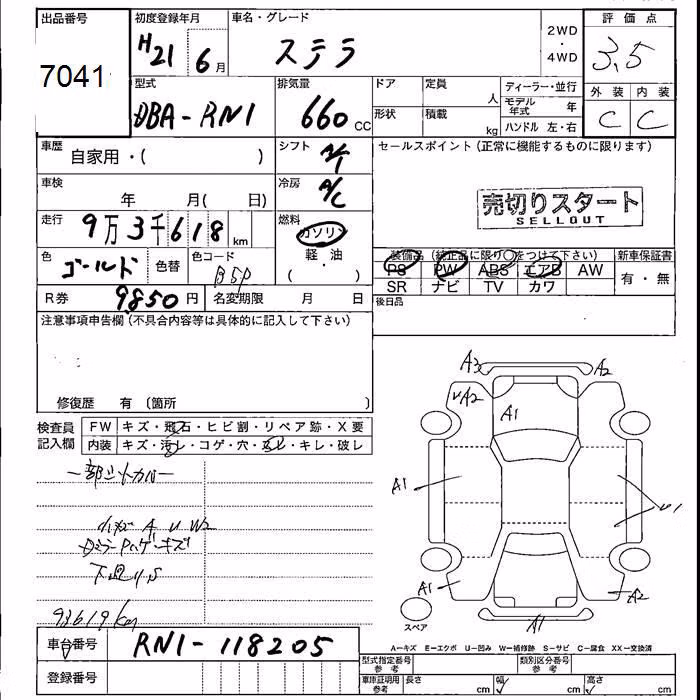 出品番号
7041
初度登録年月
H21 6月
車名・グレード
ステラ
2WD
・
4WD
評価点
3.5
外装 内装
C C
型式
DBA-RN1
排気量
660 CC
ドア
定員
人
形状
積載
kg
ディーラー・並行
モデル年式 年
ハンドル 左・右
車歴
自家用・( )
シフト
A/T
セールスポイント(正常に機能するものに限ります)
車検
年 月( 日)
冷房
A/C
売切りスタート
SELLOUT
走行
9万3千618km
燃料
ガソリン
軽・油
( )
色
ゴールド
色替
色コード
B5P
装備品(純正品に限り○をつけて下さい)
新車保証書
PS PW ABS エアB AW
有・無
SR ナビ TV カワ
R券
9850円
名変期限 月 日
後日品
注意事項申告欄(不具合内容等は具体的に記入して下さい)
修復歴 有 (箇所 )
検査員
記入欄
FW キズ・飛石・ヒビ割・リペア跡・X要
内装 キズ・汚レ・コゲ・穴・スレ・キレ・破レ
小キズ A U W2
ドミラーPハゲ・キズ
下廻りS
93619km
A3
A2
UA2
A1
A1
U1
A1
A2
A1
スペア
A-キズ E-エクボ U-凹み W-補修跡 S-サビ C-腐食 XX-交換済
車台番号
RN1-118205
登録番号
型式指定番号
参考
類別区分番号
参考
車庫証明用
参考
長さ cm
幅 cm
高さ cm